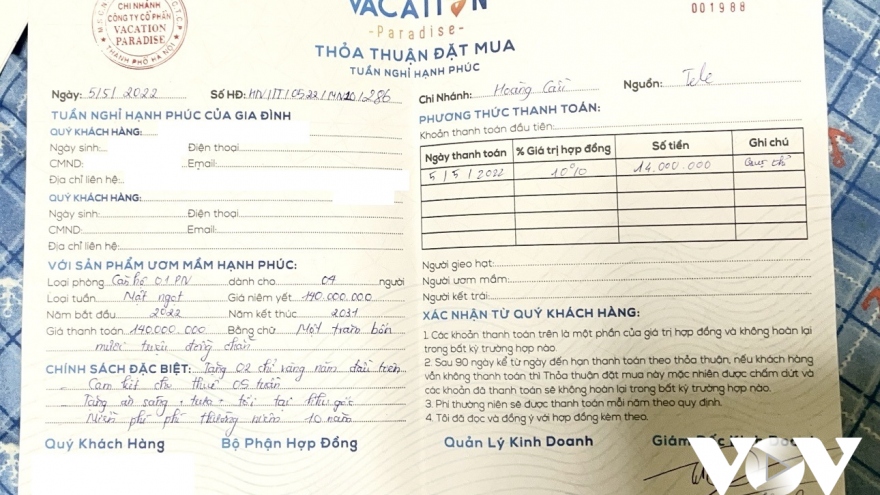 CHI NHÁNH
CÔNG TY CỔ PHẦN
VACATION
PARADISE
THÀNH PHỐ HÀ NỘI
VACATION
-Paradise-
001988
THỎA THUẬN ĐẶT MUA
TUẦN NGHỈ HẠNH PHÚC
Ngày: 5/5/2022 Số HĐ: HN/IT/0522/MN10/286
Chi Nhánh: Hoàng Cầu Nguồn: Tele
TUẦN NGHỈ HẠNH PHÚC CỦA GIA ĐÌNH
QUÝ KHÁCH HÀNG:
Ngày sinh: Điện thoại
CMND: Email:
Địa chỉ liên hệ:
QUÝ KHÁCH HÀNG:
Ngày sinh: Điện thoại
CMND: Email:
Địa chỉ liên hệ:
VỚI SẢN PHẨM ƯƠM MẦM HẠNH PHÚC:
Loại phòng: Căn hộ 01 PN dành cho 04 người
Loại tuần: Mật ngọt Giá niêm yết: 140.000.000
Năm bắt đầu: 2022 Năm kết thúc: 2031
Giá thanh toán: 140.000.000 Bằng chữ: Một trăm bốn
mươi triệu đồng chẵn
CHÍNH SÁCH ĐẶC BIỆT: Tặng 02 chỉ vàng năm đầu tiên
- Cam kết cho thuê 05 tuần
- Tặng ăn sáng + trưa + tối tại khu
- Miễn phí phí thường niên 10 năm
Quý Khách Hàng Bộ Phận Hợp Đồng
PHƯƠNG THỨC THANH TOÁN:
Khoản thanh toán đầu tiên:
Ngày thanh toán % Giá trị hợp đồng Số tiền Ghi chú
5/5/2022 10% 14.000.000 Quẹt thẻ
Người gieo hạt:
Người ươm mầm:
Người kết trái:
XÁC NHẬN TỪ QUÝ KHÁCH HÀNG:
1. Các khoản thanh toán trên là một phần của giá trị hợp đồng và không hoàn lại
trong bất kỳ trường hợp nào.
2. Sau 90 ngày kể từ ngày đến hạn thanh toán theo thỏa thuận, nếu khách hàng
vẫn không thanh toán thì Thỏa thuận đặt mua này mặc nhiên được chấm dứt và
các khoản đã thanh toán sẽ không hoàn lại trong bất kỳ trường hợp nào.
3. Phí thường niên sẽ được thanh toán mỗi năm theo quy định.
4. Tôi đã đọc và đồng ý với hợp đồng kèm theo.
Quản Lý Kinh Doanh Giám Đốc Kinh Doanh
VOV